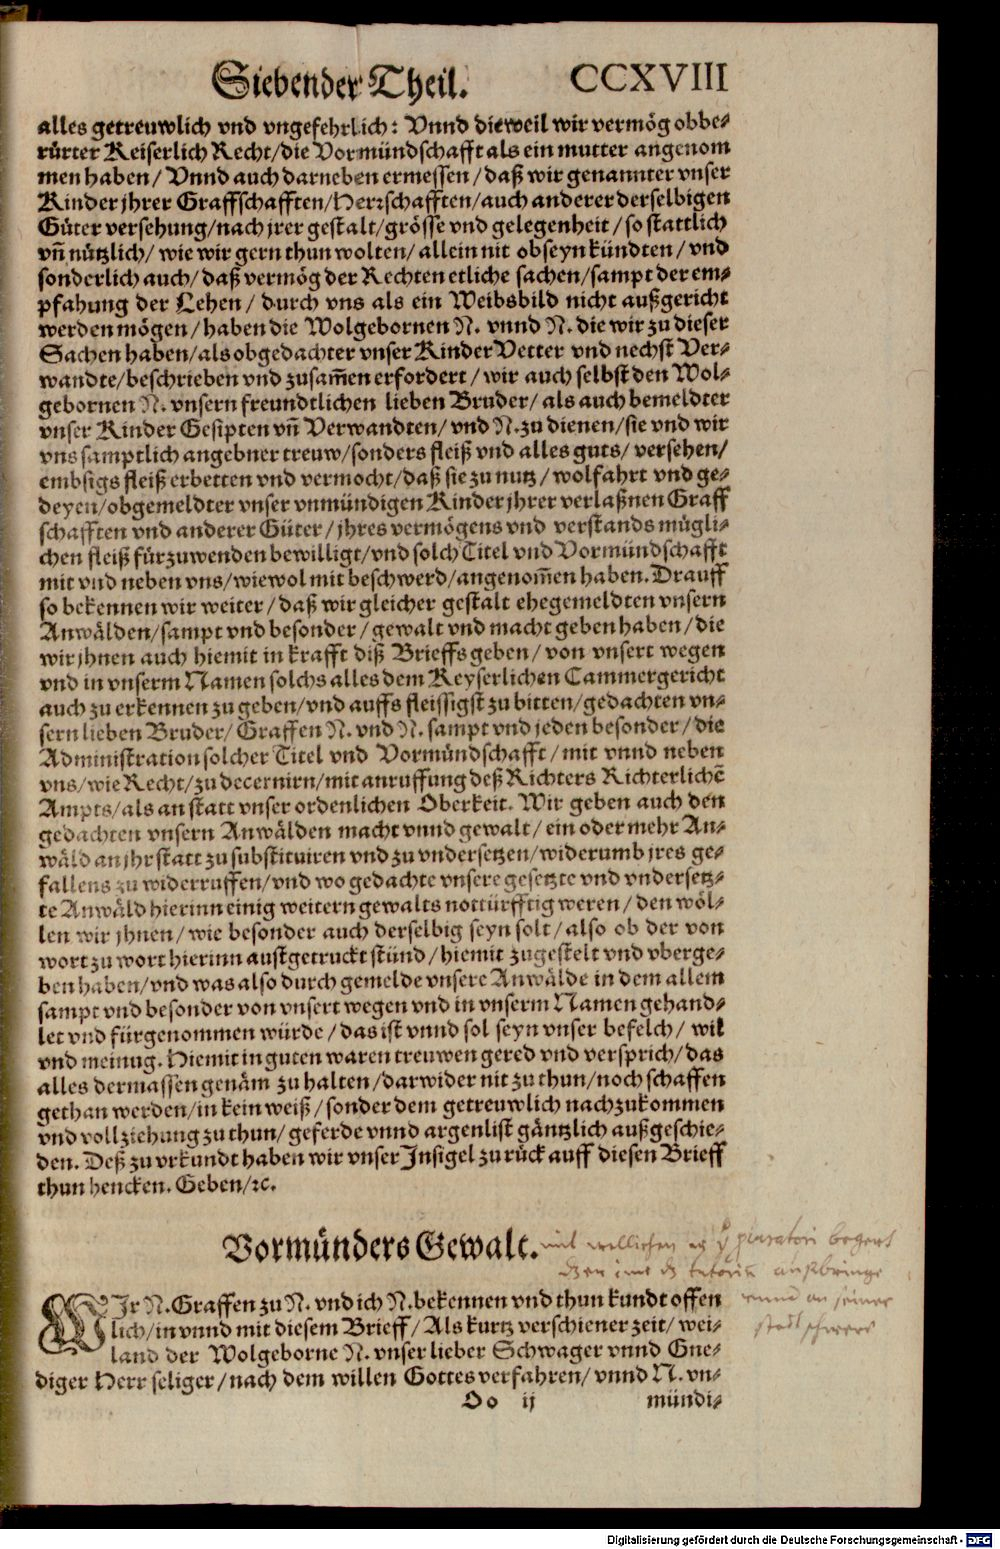 Siebender Theil. CCXVIII
alles getreuwlich vnd vngefehrlich: Vnnd dieweil wir vermög obbe⸗
rürter Keiserlich Recht/die Vormündschafft als ein mutter angenom
men haben/ Vnnd auch darneben ermessen/daß wir genannter vnser
Kinder jhrer Graffschafften/Herrschafften/auch anderer derselbigen
Güter versehung/nach jrer gestalt/grösse vnd gelegenheit/so stattlich
vñ nützlich/ wie wir gern thun wolten/allein nit obseyn kündten/ vnd
sonderlich auch/daß vermög der Rechten etliche sachen/sampt der em⸗
pfahung der Lehen/ durch vns als ein Weibsbild nicht außgericht
werden mögen/haben die Wolgebornen N. vnnd N. die wir zu dieser
Sachen haben/als obgedachter vnser Kinder Vetter vnd nechst Ver⸗
wandte/beschrieben vnd zusam̃en erfordert/ wir auch selbst den Wol⸗
gebornen N. vnsern freundtlichen lieben Bruder/als auch bemeldter
vnser Kinder Gesipten vñ Verwandten/ vnd N. zu dienen/sie vnd wir
vns samptlich angebner treuw/sonders fleiß vnd alles guts/ versehen/
embsigs fleiß erbetten vnd vermocht/daß sie zu nutz/wolfahrt vnd ge⸗
deyen/obgemeldter vnser vnmündigen Kinder jhrer verlaßnen Graff
schafften vnd anderer Güter/jhres vermögens vnd verstands mügli⸗
chen fleiß fürzuwenden bewilligt/vnd solch Titel vnd Vormündschafft
mit vnd neben vns/wiewol mit beschwerd/angenom̃en haben. Drauff
so bekennen wir weiter/daß wir gleicher gestalt ehegemeldten vnsern
Anwälden/sampt vnd besonder/gewalt vnd macht geben haben/die
wir jhnen auch hiemit in krafft diß Brieffs geben/ von vnsert wegen
vnd in vnserm Namen solchs alles dem Keyserlichen Cammergericht
auch zu erkennen zu geben/vnd auffs fleissigst zu bitten/gedachten vn⸗
sern lieben Bruder/ Graffen N. vnd N. sampt vnd jeden besonder/die
Administration solcher Titel vnd Vormündschafft/mit vnnd neben
vns/wie Recht/zu decernirn/mit anruffung deß Richters Richterlichẽ
Ampts/als an statt vnser ordenlichen Oberkeit. Wir geben auch den
gedachten vnsern Anwälden macht vnnd gewalt/ein oder mehr An⸗
wäld an jhr statt zu substituiren vnd zu vndersetzen/widerumb jres ge⸗
fallens zu widerruffen/vnd wo gedachte vnsere gesetzte vnd vndersetz⸗
te Anwäld hierinn einig weitern gewalts nottürfftig weren/den wöl⸗
len wir jhnen/wie besonder auch derselbig seyn solt/also ob der von
wort zu wort hierinn austgetruckt stünd/hiemit zugestelt vnd vberge⸗
ben haben/vnd was also durch gemelde vnsere Anwälde in dem allem
sampt vnd besonder von vnsert wegen vnd in vnserm Namen gehand⸗
let vnd fürgenommen würde/das ist vnnd sol seyn vnser befelch/ wil
vnd meinug. Hiemit in guten waren treuwen gered vnd versprich/das
alles dermassen genäm zu halten/darwider nit zu thun/noch schaffen
gethan werden/in kein weiß/sonder dem getreuwlich nachzukommen
vnd vollziehung zu thun/geferde vnnd argenlist gäntzlich außgeschie⸗
den. Deß zu vrkundt haben wir vnser Insigel zu rück auff diesen Brieff
thun hencken. Geben/ꝛc.
Vormünders Gewalt.
begert
außbringe
an seiner
statt schwere
WJr N. Graffen zu N. vnd ich N. bekennen vnd thun kundt offen
lich/in vnnd mit diesem Brieff/Als kurtz verschiener zeit/wei⸗
land der Wolgeborne N. vnser lieber Schwager vnnd Gne⸗
diger Herr seliger/nach dem willen Gottes verfahren/vnnd N. vn⸗
Oo ij mündi⸗
Digitalisierung gefördert durch die Deutsche Forschungsgemeinschaft - DFG